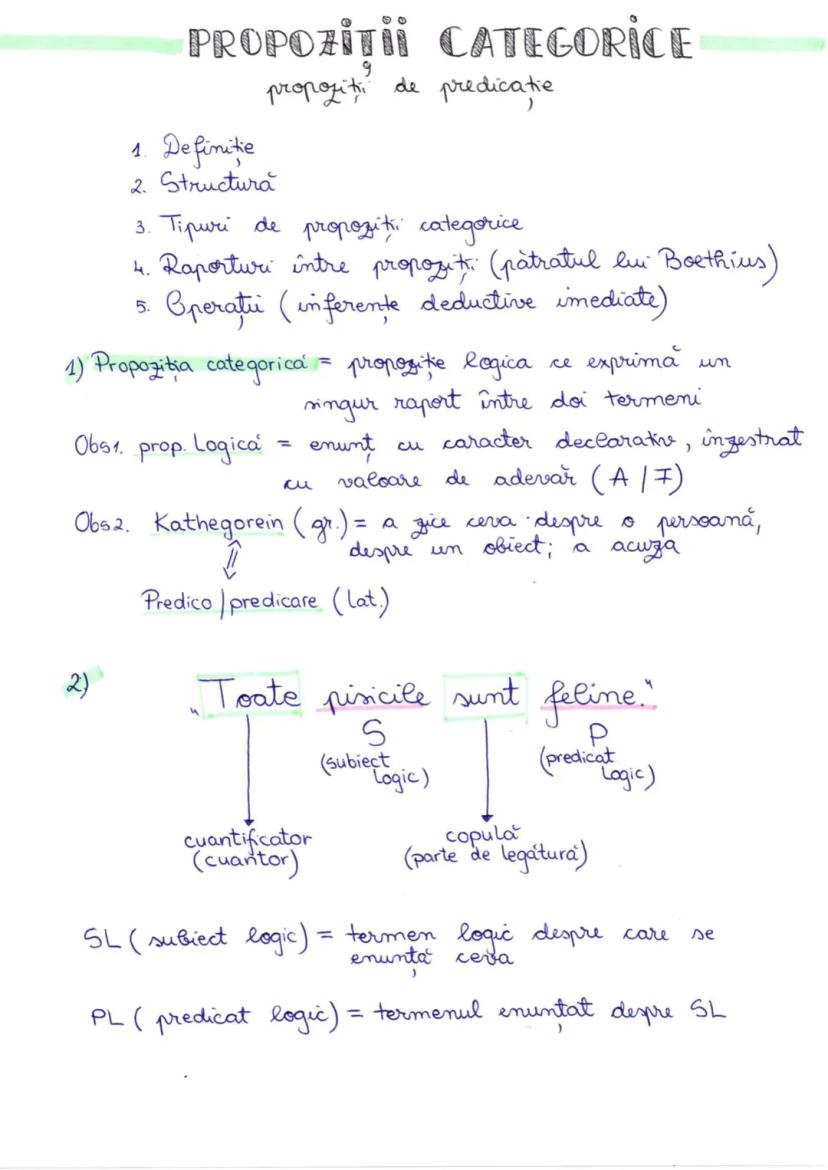 PROPOZIȚII CATEGORICE
propoziții de predicație
1. Definiție
2. Structură
3. Tipuri de propoziții categorice
4. Raporturi între propoziții (pătratul lui Boethius)
5. Operații (inferențe deductive imediate)
1) Propoziția categorică = propoziție logica ce exprimă un
singur raport între doi termeni
Obs1. prop. Logică = enunț cu caracter declarativ, înzestrat
cu valoare de adevăr (A / F)
Obs2. Kathegorein (gr.) = a zice ceva despre o persoană,
despre un obiect; a acuza
⇕
Predico / predicare (lat.)
2) „Toate pisicile sunt feline."
S P
(subiect logic) (predicat logic)
cuantificator copulă
(cuantor) (parte de legătură)
SL (subiect logic) = termen logic despre care se
enunță ceva
PL (predicat logic) = termenul enunțat despre SL